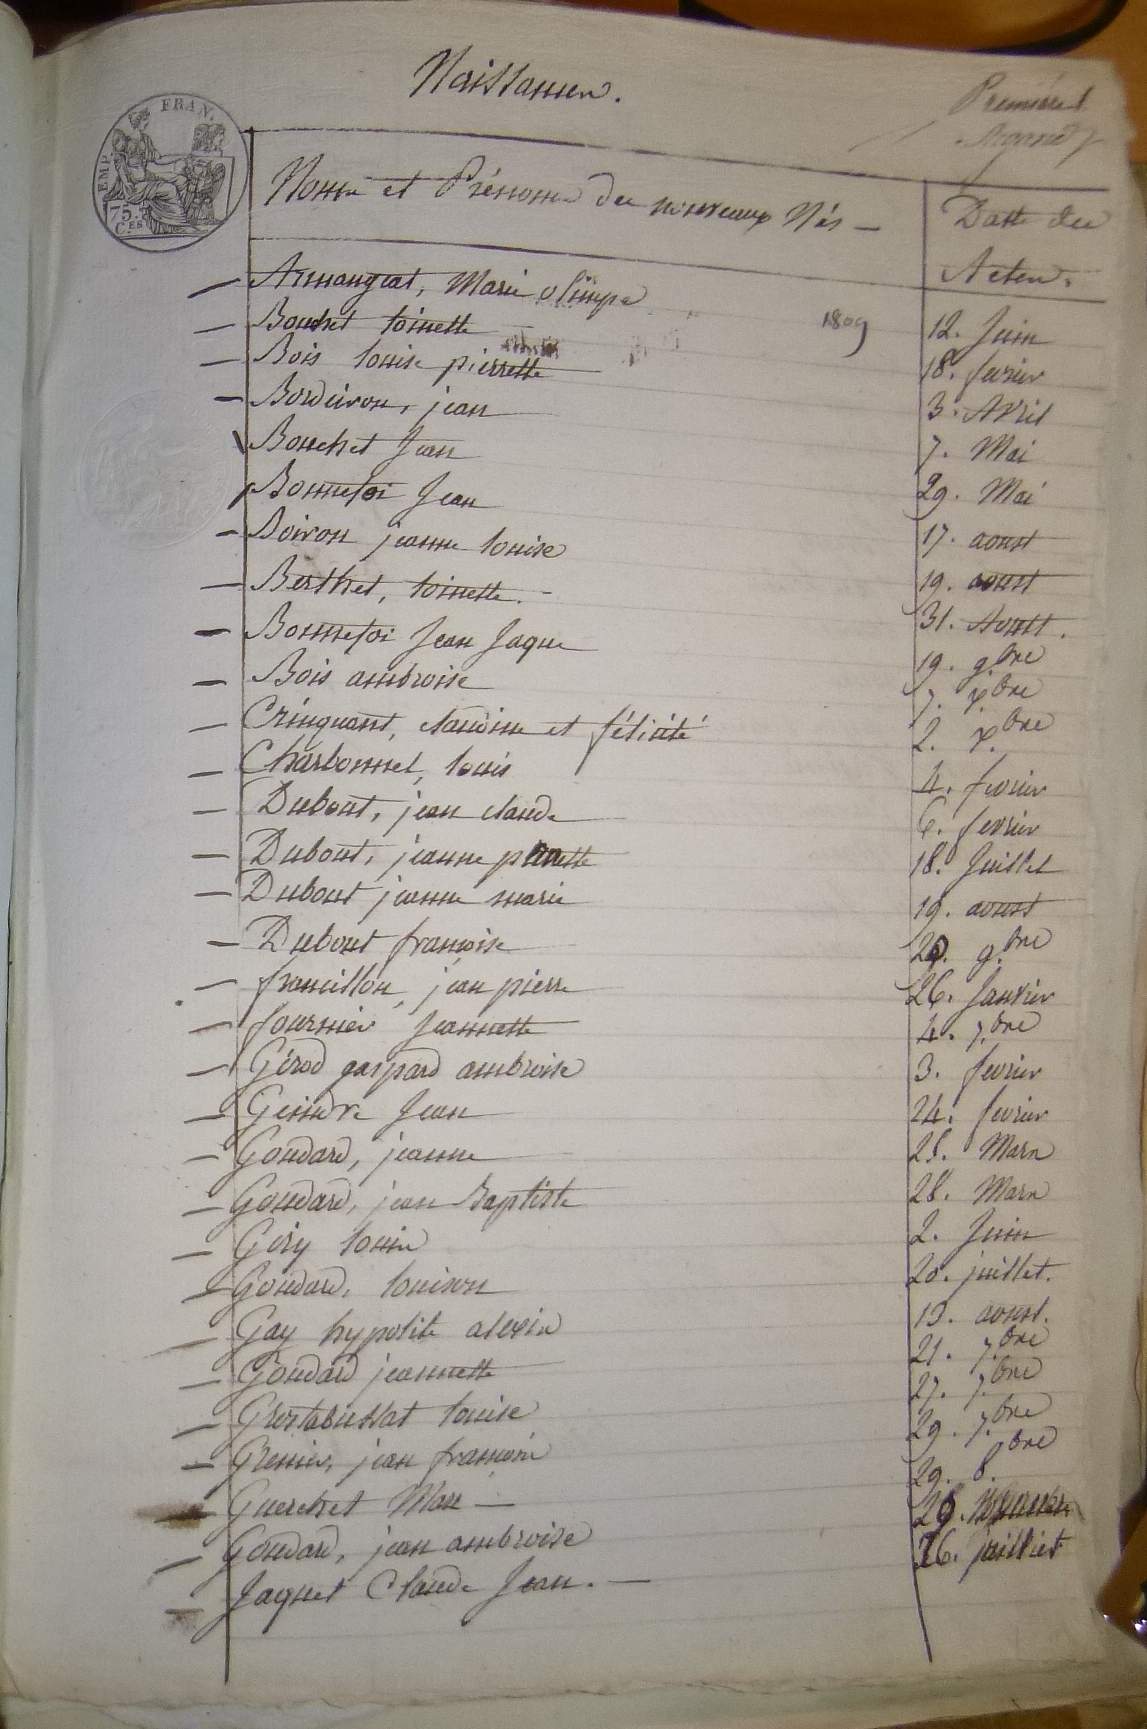 Naissances.
Première
Noms et Prénoms des nouveaux Nés — Date des
Actes.
— Armangeat, Marie olimpe 1809 12. Juin
— Bouchet toinette 18. fevrier
— Bois louise pierrette 3. Avril
— Bordeiron, jean 7. Mai
Bouchet Jean 29. Mai
Bonnefoi Jean 17. aoust
— Boiron jeanne louise 19. aoust
— Berthet, toinette. 31. Aoust.
— Bonnefoi Jean Jaque 19. 9bre
— Bois ambroise 7. xbre
— Cringuant, claudine et félicité 2. xbre
— Charbonnet, louis 4. fevrier
— Dubout, jean claude 6. fevrier
— Dubout, jeanne pierrette 18. Juillet
— Dubout jeanne marie 19. aoust
— Dubout françoise 20. 9bre
— francillon, jean pierre 26. Janvier
— fournier Jeannette 4. 7bre
— Gérod gaspard ambroise 3. fevrier
— Geindre Jean 24. fevrier
— Goudard, jeanne Mars
— Goudard, jean Baptiste 28. Mars
— Gery louis 2. Juin
— Goudard, louison 20. juillet.
— Gay hypolite alexis 13. aoust.
— Goudard jeannette 21. 7bre
— Grostabussiat louise 27. 7bre
— Grenier, jean françois 29. 7bre
— Guerchet Marc — 29. 8bre
— Goudard, jean ambroise
— Jaquet Claude Jean. — 26. juillet
EMP. FRAN.
75.
C.ES